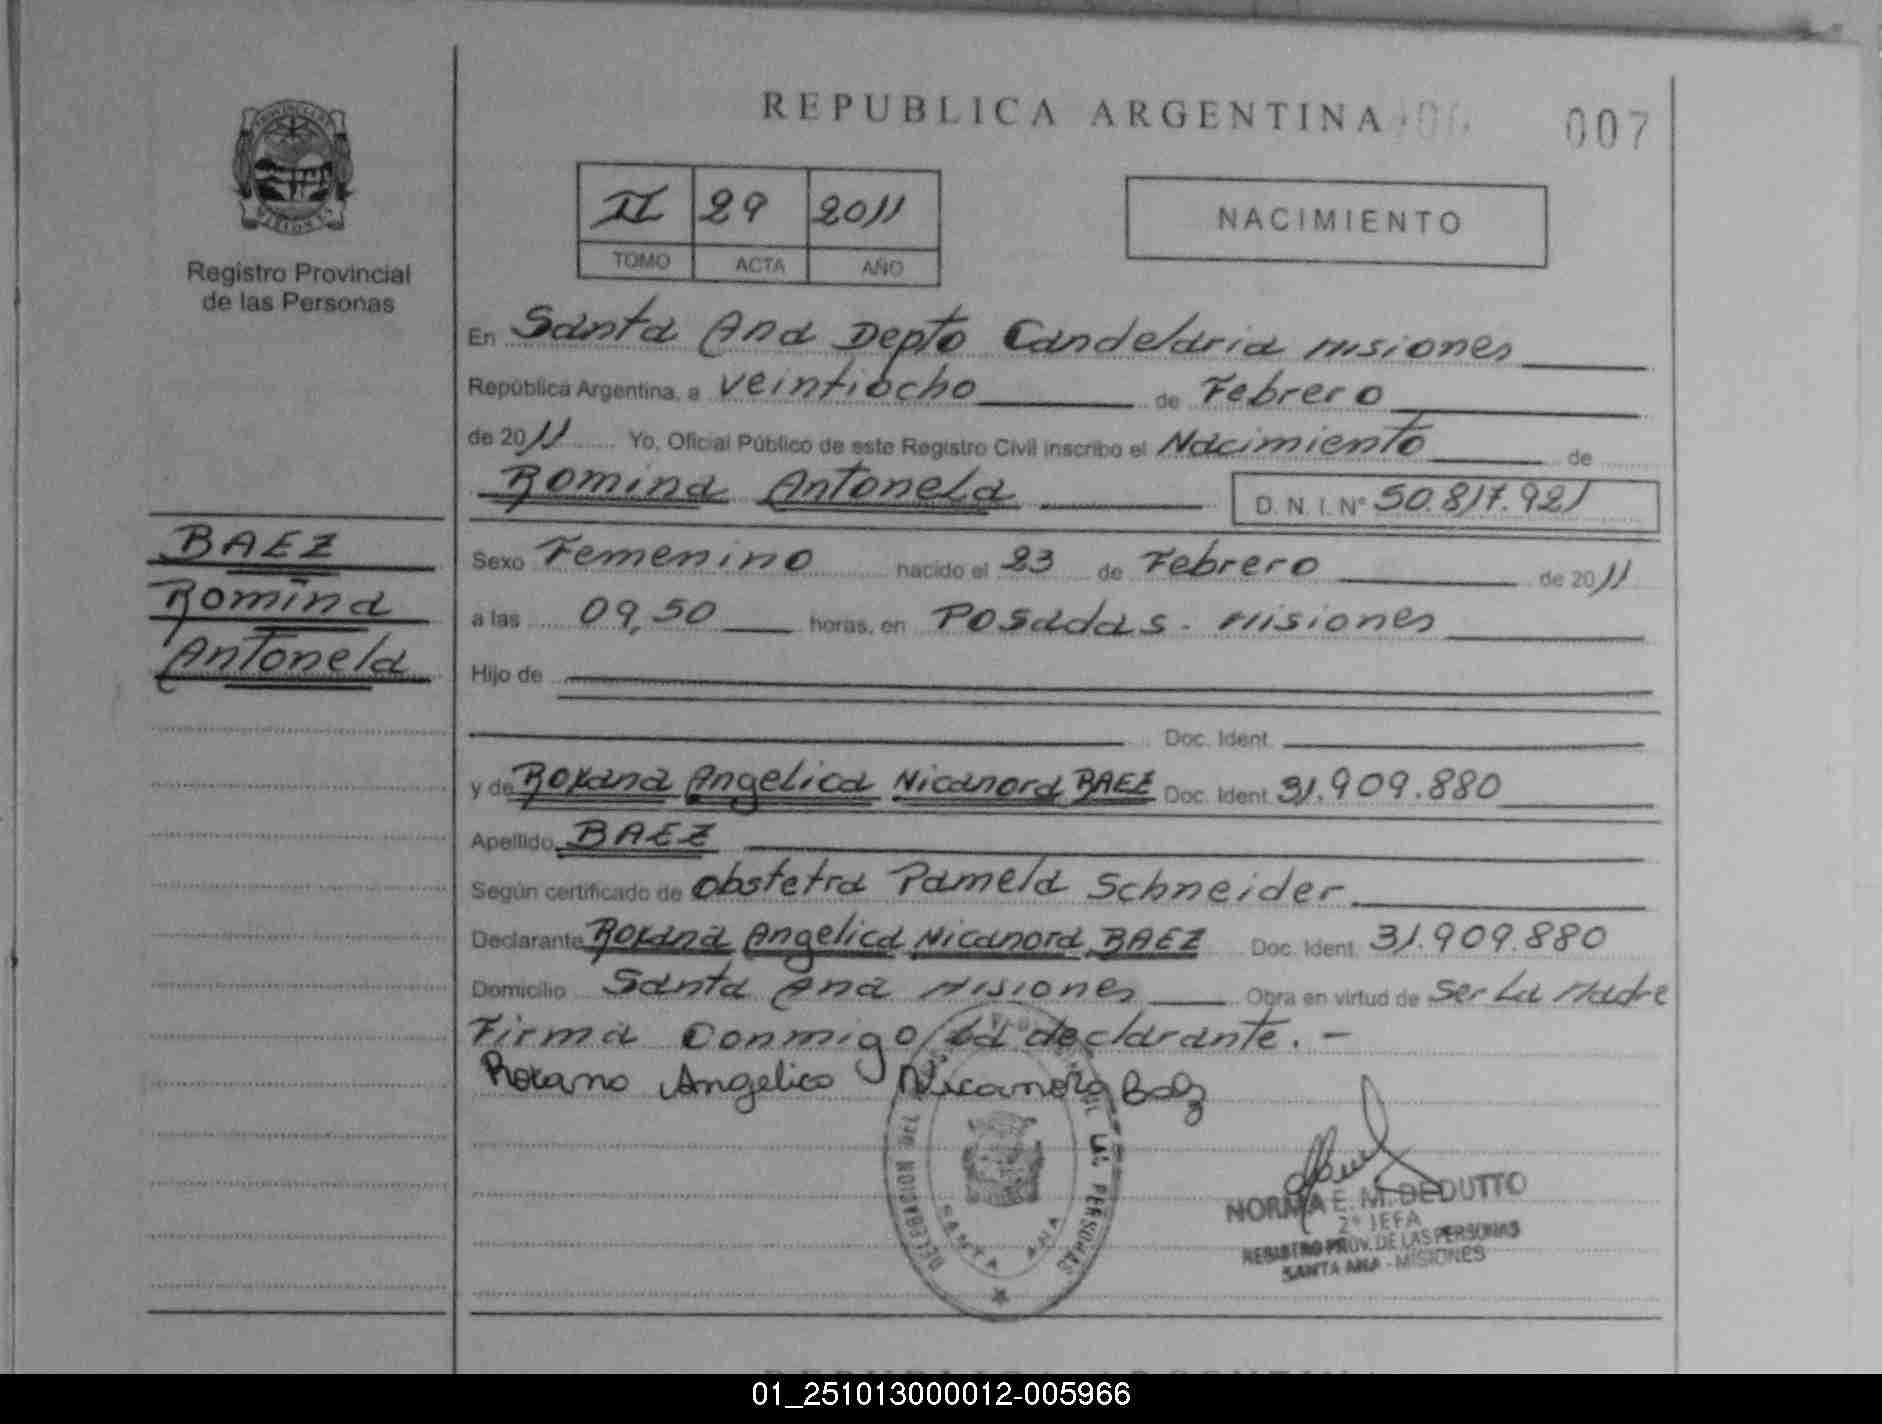 REPUBLICA ARGENTINA
007
PROVINCIA DE MISIONES
Registro Provincial
de las Personas
II 29 2011
TOMO ACTA AÑO
NACIMIENTO
En Santa Ana Depto Candelaria Misiones
República Argentina, a veintiocho de Febrero
de 2011 Yo, Oficial Público de este Registro Civil inscribo el Nacimiento de
Romina Antonela D. N. I. Nº 50.817.921
BAEZ
Romina
Antonela
Sexo Femenino nacido el 23 de Febrero de 2011
a las 09,50 horas, en Posadas - Misiones
Hijo de
Doc. Ident.
y de Roxana Angelica Nicanora BAEZ Doc. Ident. 31.909.880
Apellido BAEZ
Según certificado de obstetra Pamela Schneider
Declarante Roxana Angelica Nicanora BAEZ Doc. Ident. 31.909.880
Domicilio Santa Ana Misiones Obra en virtud de Ser La Madre
Firma Conmigo La declarante. -
Roxana Angelica Nicanora Baez
DELEGACION
PERSONAS
SANTA ANA
NORMA E. M. DEDUTTO
2º JEFA
REGISTRO PROV. DE LAS PERSONAS
SANTA ANA - MISIONES
01_251013000012-005966